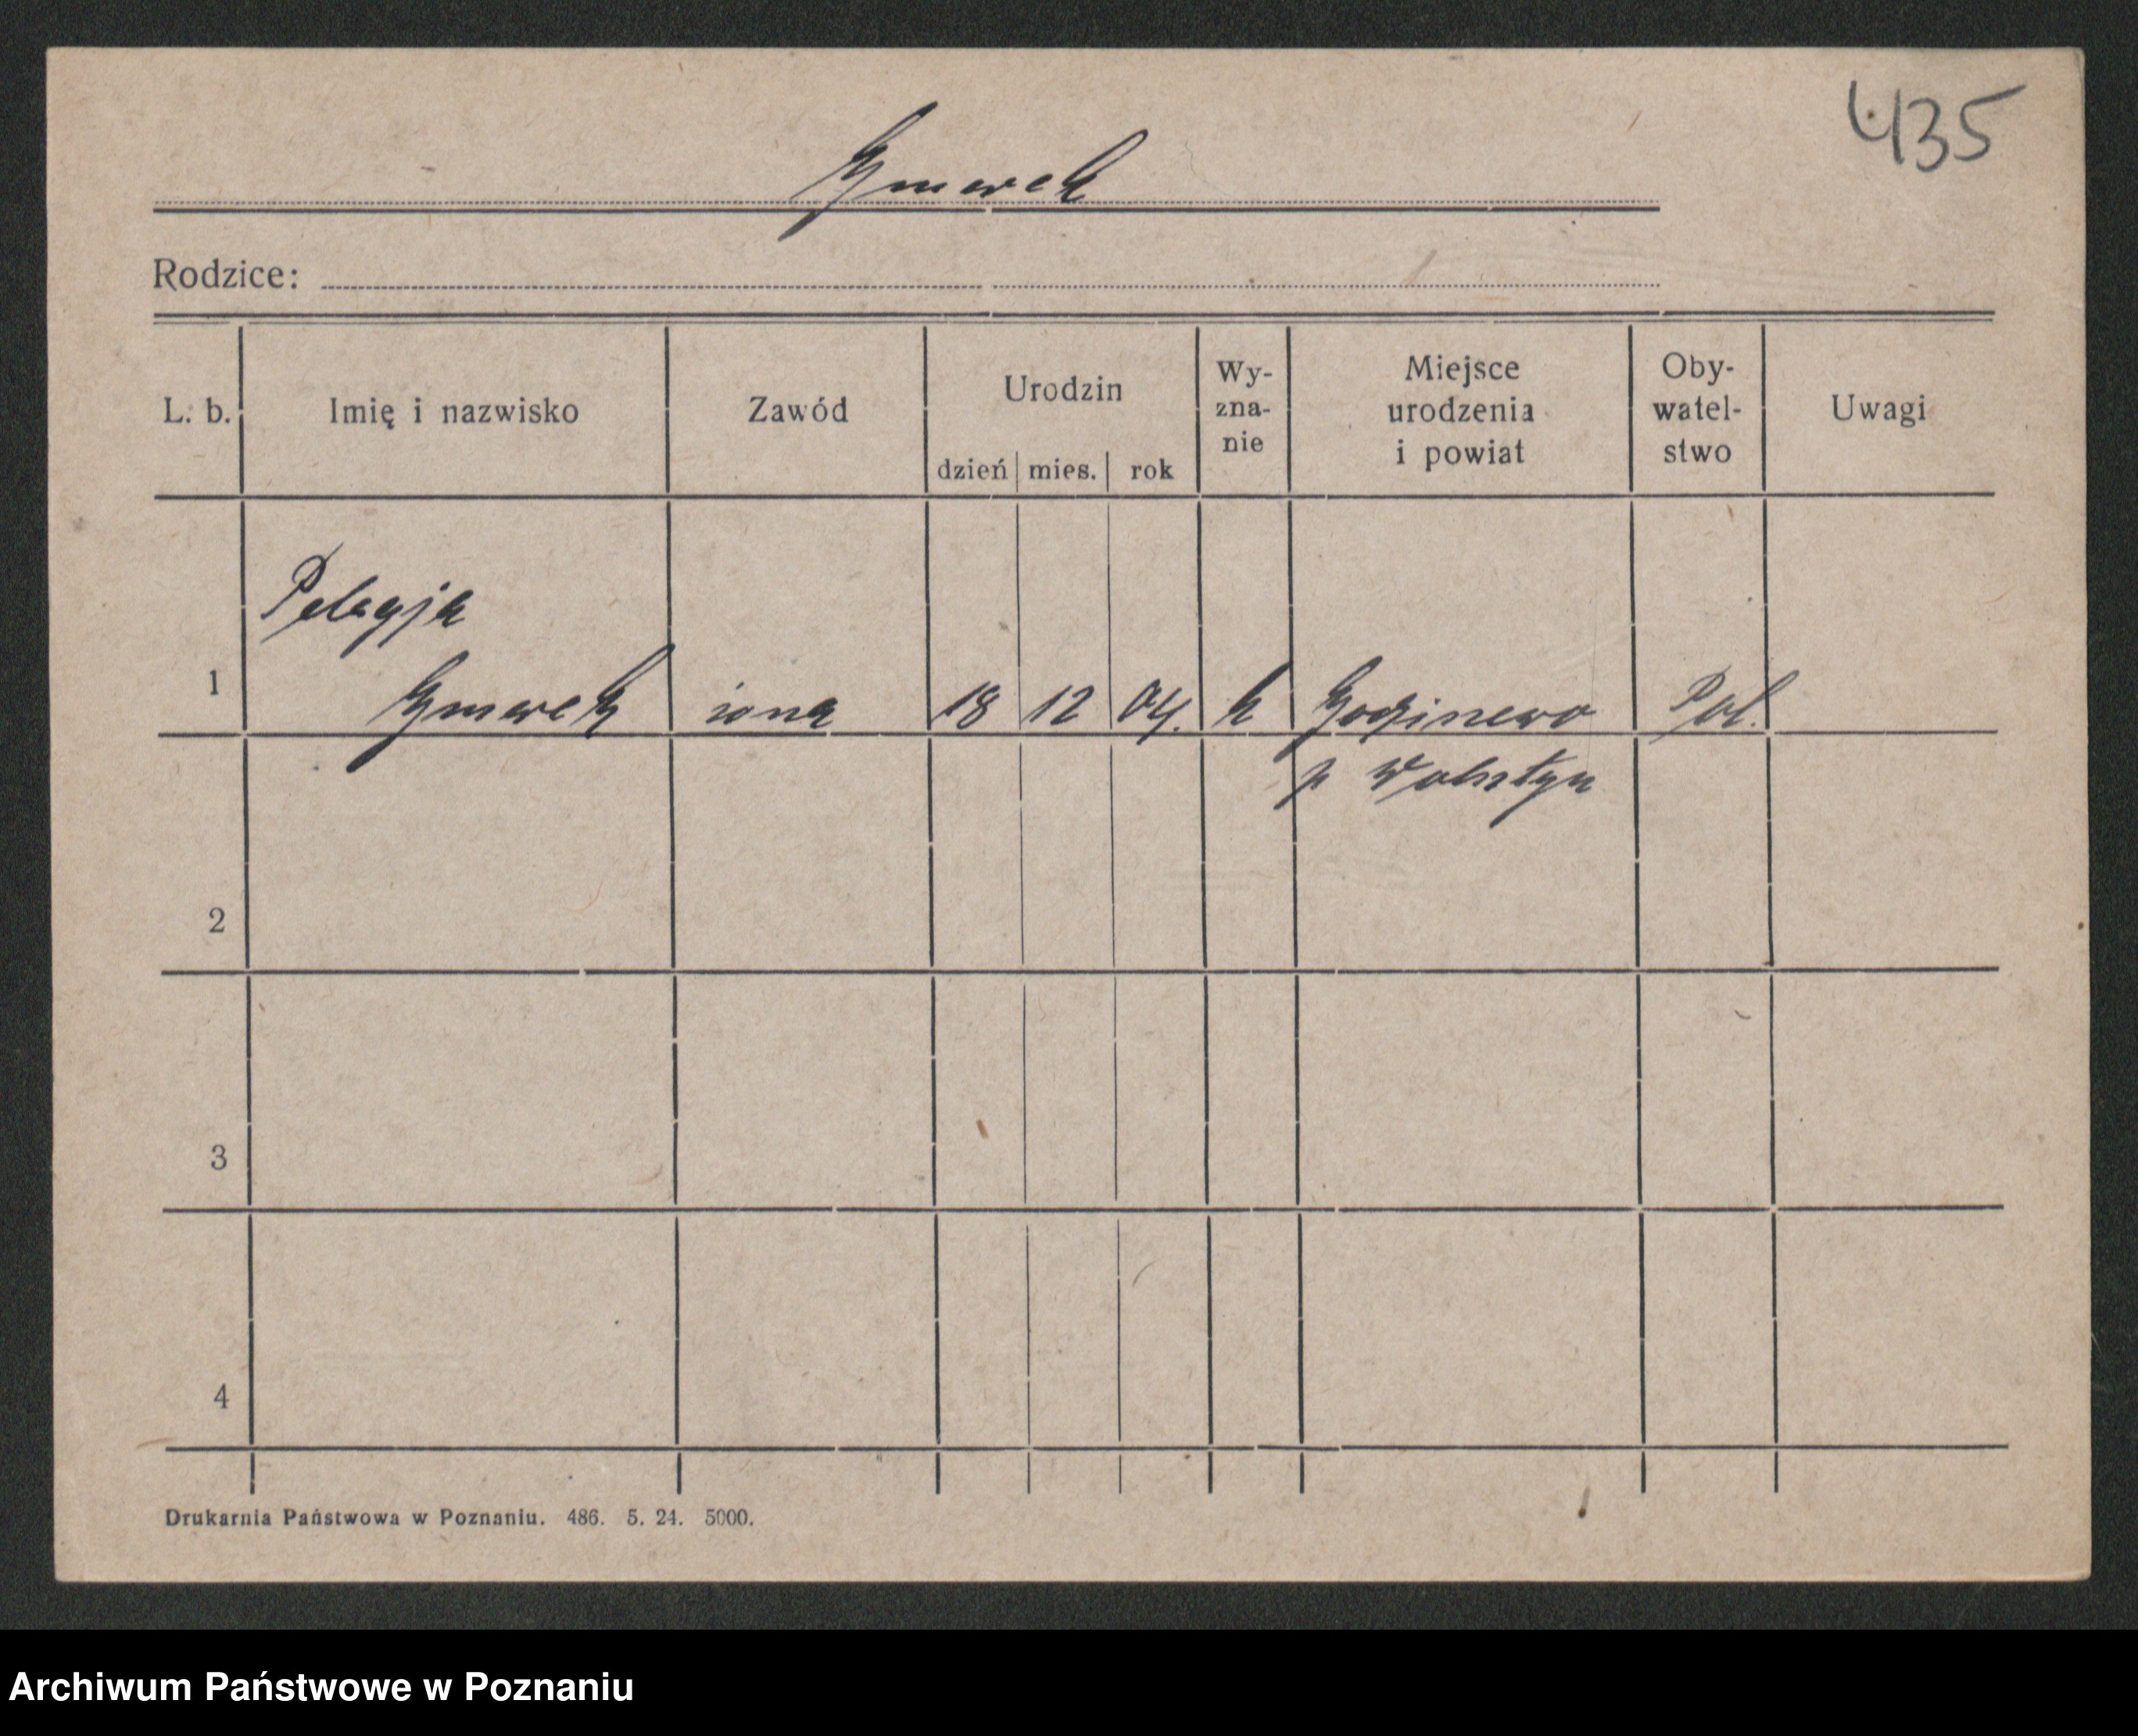 435
Gmerek
Rodzice:
L. b. Imię i nazwisko Zawód Urodzin Wy-zna-nie Miejsce urodzenia i powiat Oby-watel-stwo Uwagi
dzień mies. rok
Pelagja
1 Gmerek żona 18 12 04. k Godziszewo Pol.
p Wolsztyn
2
3
4
Drukarnia Państwowa w Poznaniu. 486. 5. 24. 5000.
Archiwum Państwowe w Poznaniu